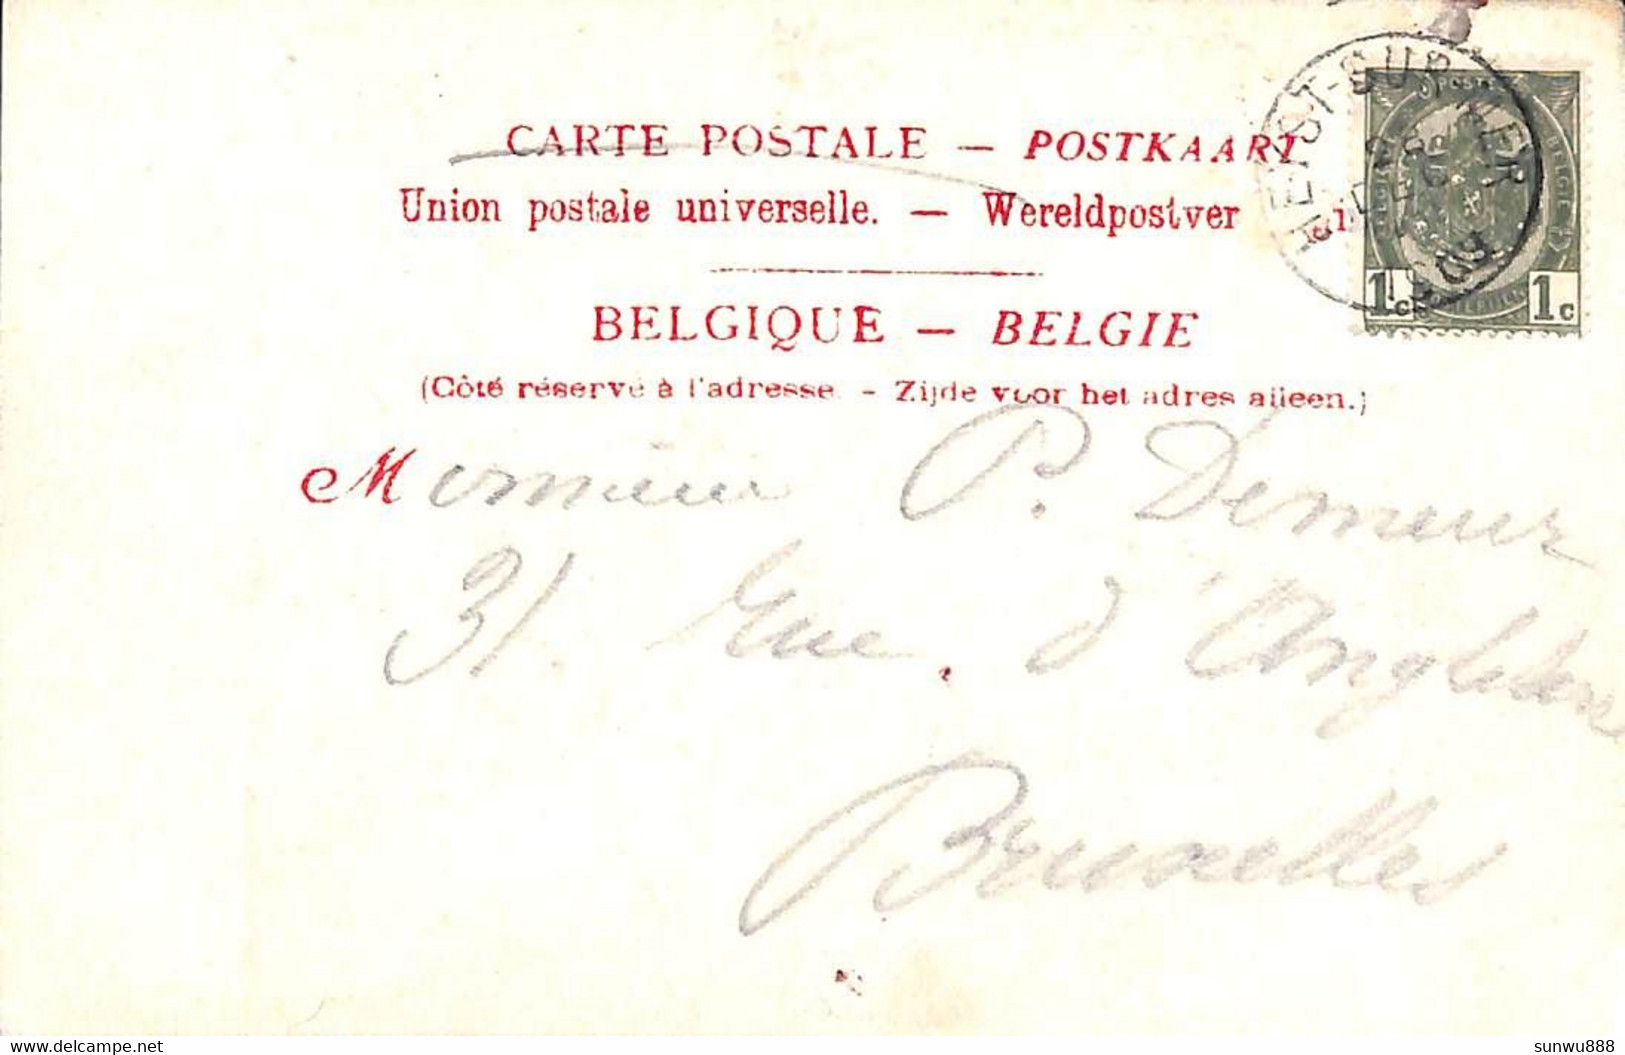 CARTE POSTALE — POSTKAART
Union postale universelle. — Wereldpostver
BELGIQUE — BELGIE
(Côté réservé à l'adresse. - Zijde voor het adres alleen.)
Monsieur P. Demeur
31 Rue d'Angleterre
Bruxelles
HEYST-SUR-MER
1c 1c
delcampe.net
sunwu888